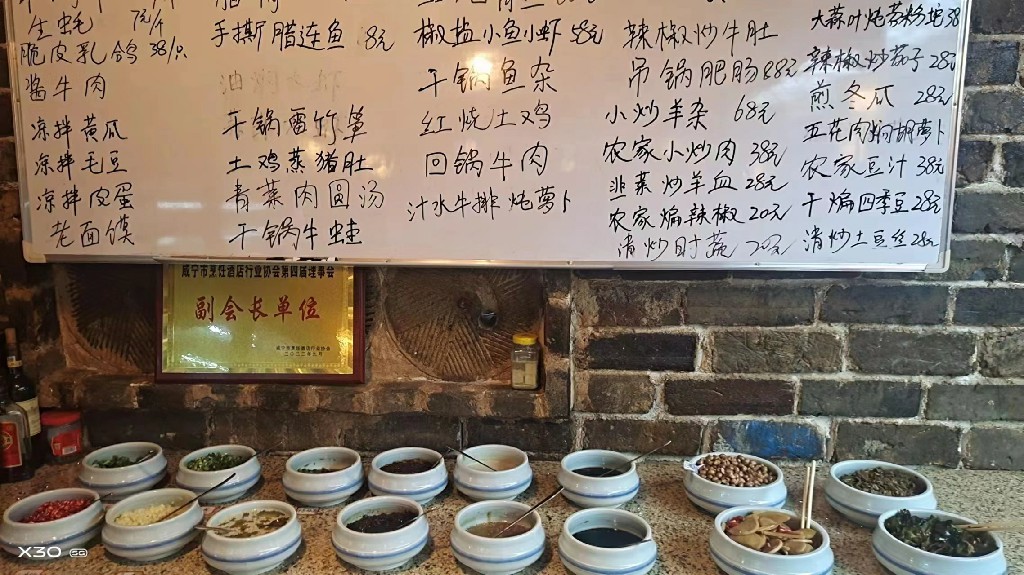 生蚝 78/斤
脆皮乳鸽 38/只
酱牛肉
凉拌黄瓜
凉拌毛豆
凉拌皮蛋
老面馍
手撕腊连鱼 8元
干锅雷竹笋
土鸡蒸猪肚
青菜肉圆汤
干锅牛蛙
椒盐小鱼小虾 58元
干锅鱼杂
红烧土鸡
回锅牛肉
汁水牛排炖萝卜
辣椒炒牛肚
吊锅肥肠 88元
小炒羊杂 68元
农家小炒肉 38元
韭菜炒羊血 28元
农家煸辣椒 20元
清炒时蔬 20元
大蒜叶炖苕粉坨 38
辣椒炒茄子 28元
煎冬瓜 28元
五花肉焖胡萝卜
农家豆汁 38元
干煸四季豆 28元
清炒土豆丝 28元
咸宁市烹饪酒店行业协会第四届理事会
副会长单位
咸宁市烹饪酒店行业协会
X30 5G